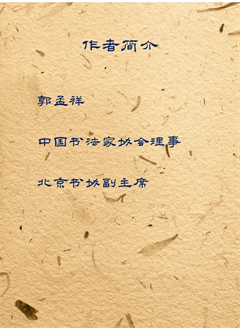 作者简介
郭孟祥
中国书法家协会理事
北京书协副主席